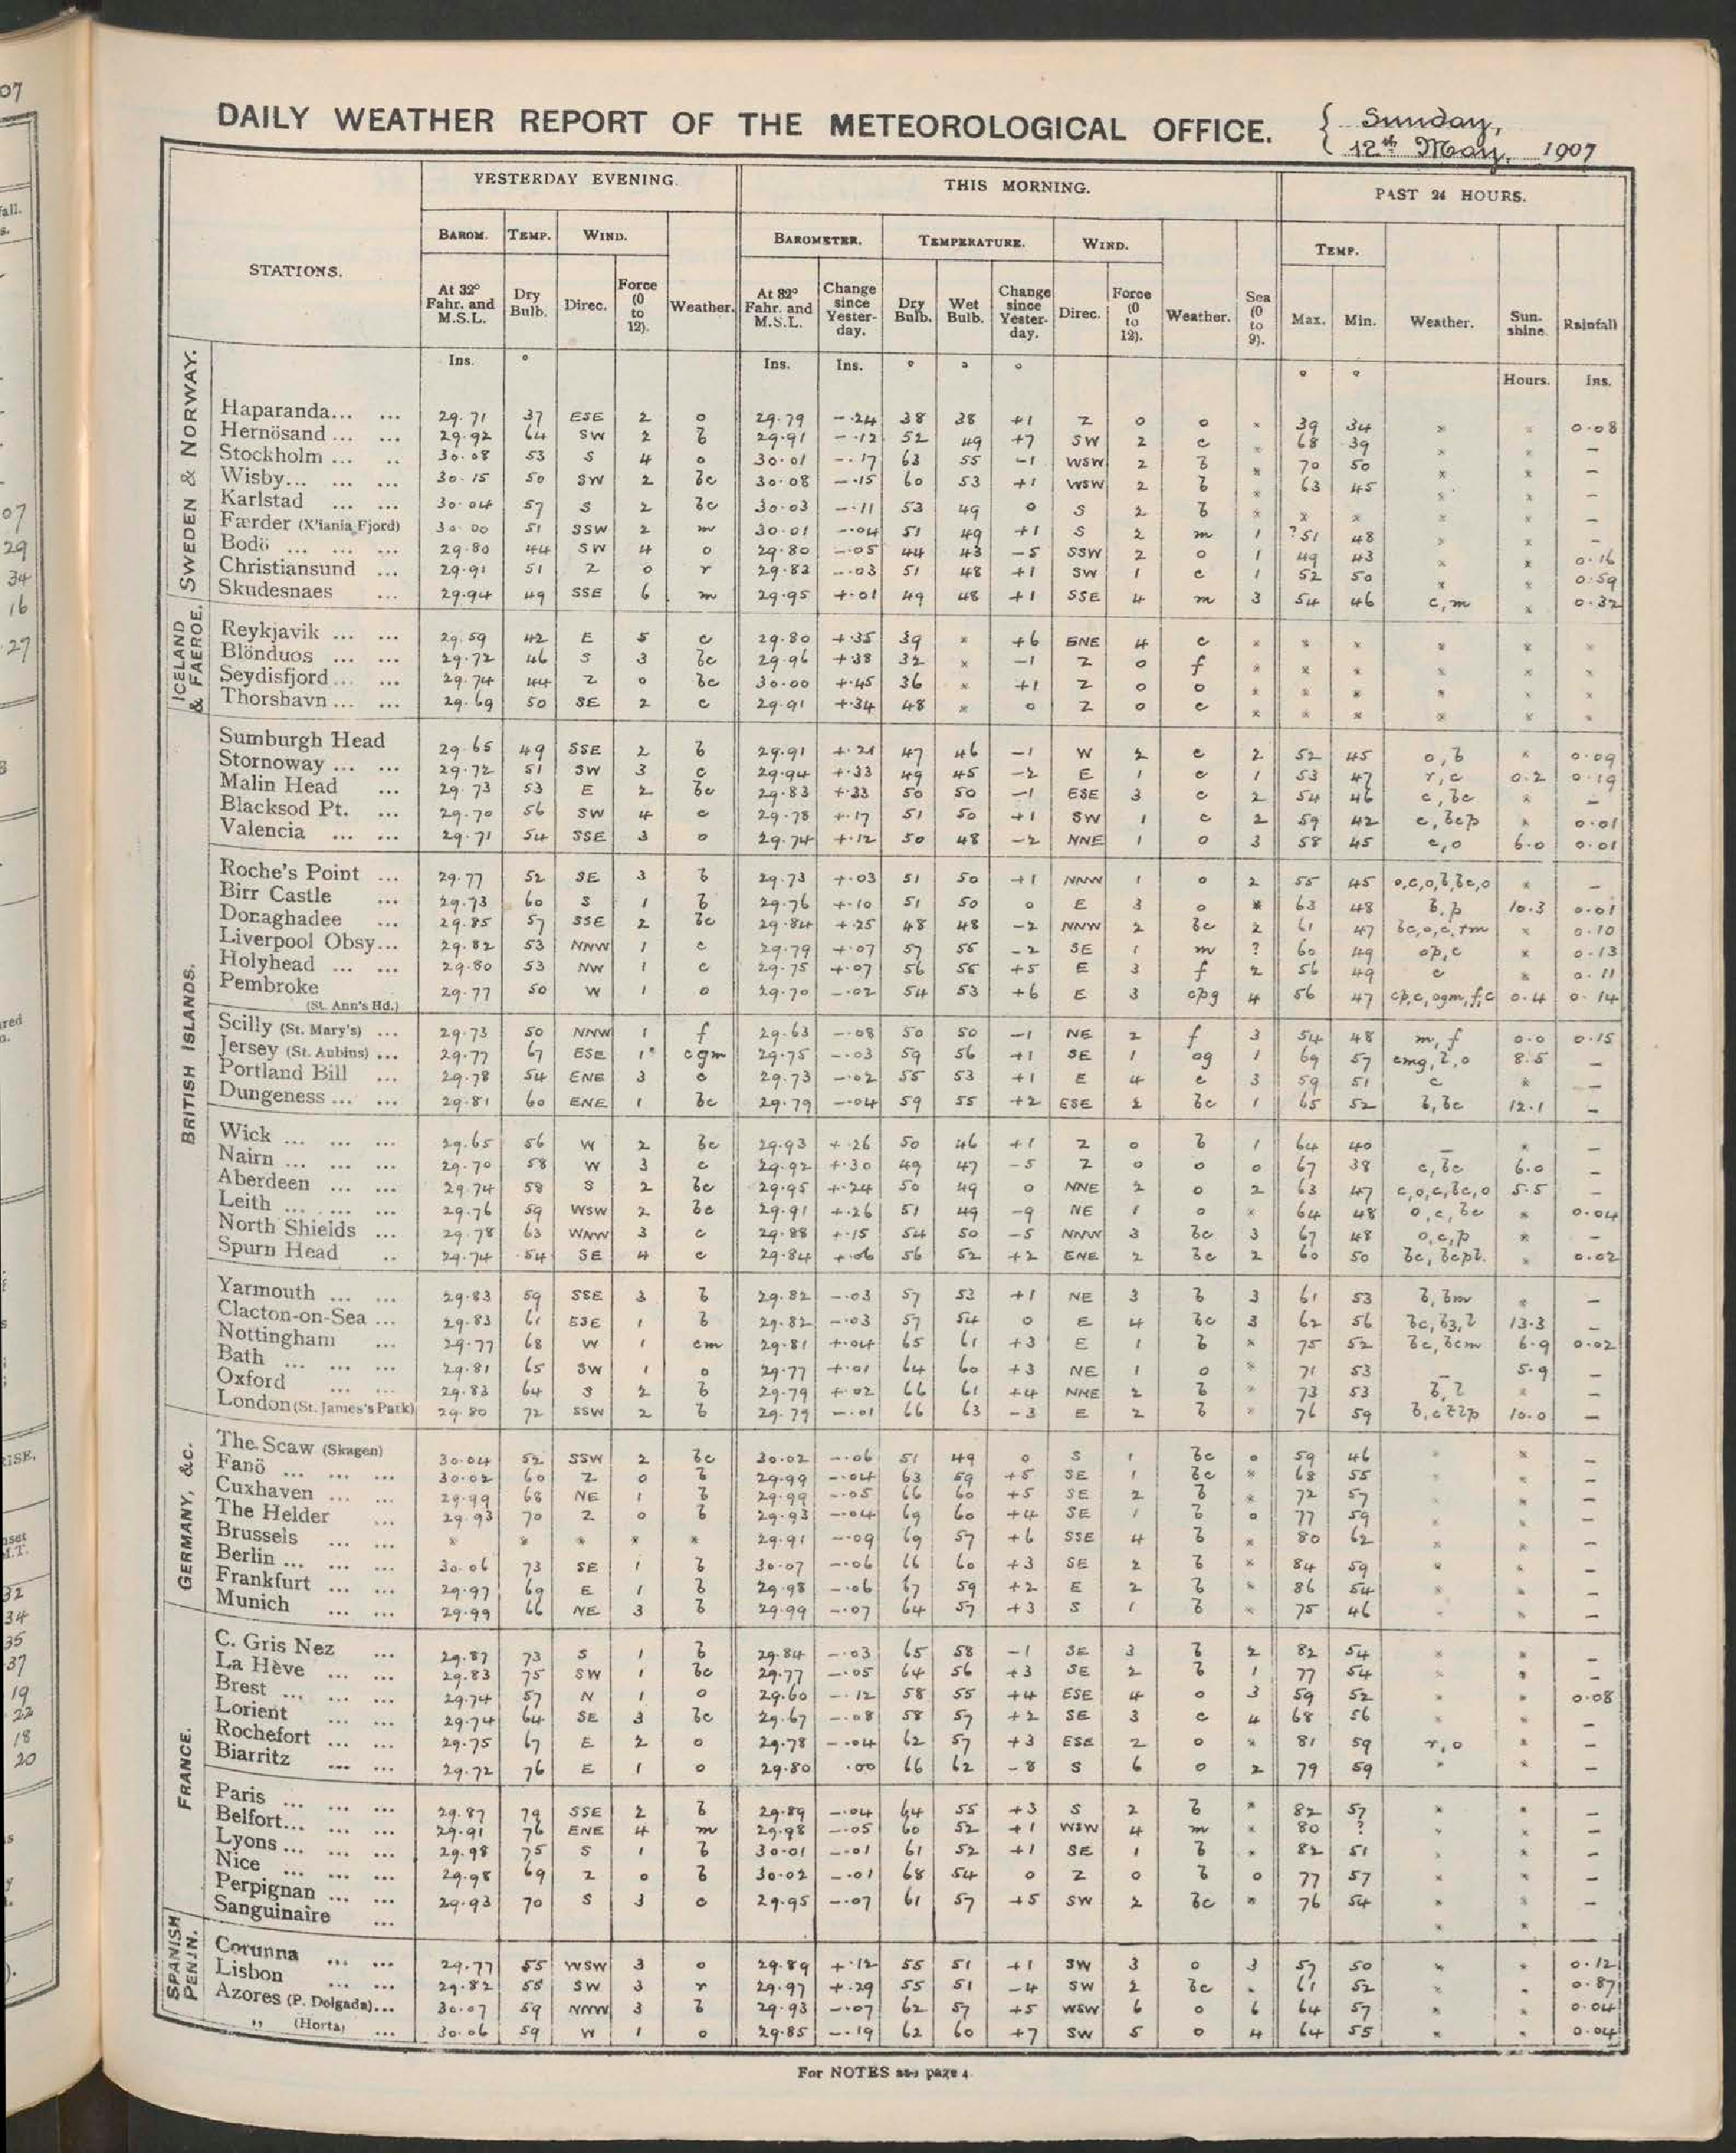 DAILY WEATHER REPORT OF THE METEOROLOGICAL OFFICE. { Sunday,
12th May, 1907
STATIONS. YESTERDAY EVENING. THIS MORNING. PAST 24 HOURS.
BAROM. TEMP. WIND. BAROMETER. TEMPERATURE. WIND. TEMP.
At 32° Fahr. and M.S.L. Dry Bulb. Direc. Force (0 to 12). Weather. At 32° Fahr. and M.S.L. Change since Yesterday. Dry Bulb. Wet Bulb. Change since Yesterday. Direc. Force (0 to 12). Weather. Sea (0 to 9). Max. Min. Weather. Sunshine. Rainfall
Ins. ° Ins. Ins. ° ° ° ° ° Hours. Ins.
SWEDEN & NORWAY.
Haparanda... ... 29.71 37 ESE 2 o 29.79 -.24 38 38 +1 Z 0 o × 39 34 × × 0.08
Hernösand ... ... 29.92 64 SW 2 b 29.91 -.12 52 49 +7 SW 2 c × 68 39 × × -
Stockholm ... .. 30.08 53 S 4 o 30.01 -.17 63 55 -1 WSW 2 b × 70 50 × × -
Wisby... ... ... 30.15 50 SW 2 bc 30.08 -.15 60 53 +1 WSW 2 b × 63 45 × × -
Karlstad ... ... 30.04 57 S 2 bc 30.03 -.11 53 49 0 S 2 b × × × × × -
Færder (X'iania Fjord) 30.00 51 SSW 2 m 30.01 -.04 51 49 +1 S 2 m 1 ?51 48 × × -
Bodö ... ... ... 29.80 44 SW 4 o 29.80 -.05 44 43 -5 SSW 2 o 1 49 43 × × 0.16
Christiansund ... 29.91 51 Z 0 r 29.82 -.03 51 48 +1 SW 1 c 1 52 50 × × 0.59
Skudesnaes ... 29.94 49 SSE 6 m 29.95 +.01 49 48 +1 SSE 4 m 3 54 46 c,m × 0.32
ICELAND & FAEROE.
Reykjavik ... ... 29.59 42 E 5 c 29.80 +.35 39 × +6 ENE 4 c × × × × × ×
Blönduos ... ... 29.72 46 S 3 bc 29.96 +.38 32 × -1 Z 0 f × × × × × ×
Seydisfjord... ... 29.74 44 Z 0 bc 30.00 +.45 36 × +1 Z 0 o × × × × × ×
Thorshavn ... ... 29.69 50 SE 2 c 29.91 +.34 48 × 0 Z 0 c × × × × × ×
BRITISH ISLANDS.
Sumburgh Head 29.65 49 SSE 2 b 29.91 +.21 47 46 -1 W 2 c 2 52 45 o,b × 0.09
Stornoway ... ... 29.72 51 SW 3 c 29.94 +.33 49 45 -2 E 1 c 1 53 47 r,c 0.2 0.19
Malin Head ... 29.73 53 E 2 bc 29.83 +.33 50 50 -1 ESE 3 c 2 54 46 c,bc × -
Blacksod Pt. ... 29.70 56 SW 4 c 29.78 +.17 51 50 +1 SW 1 c 2 59 42 c,bcp × 0.01
Valencia ... ... 29.71 54 SSE 3 o 29.74 +.12 50 48 -2 NNE 1 o 3 58 45 c,o 6.0 0.01
Roche's Point ... 29.77 52 SE 3 b 29.73 +.03 51 50 +1 NNW 1 o 2 55 45 o,c,o,b,bc,o × -
Birr Castle ... 29.73 60 S 1 b 29.76 +.10 51 50 0 E 3 o × 63 48 b,p 10.3 0.01
Donaghadee ... 29.85 57 SSE 2 bc 29.84 +.25 48 48 -2 NNW 2 bc 2 61 47 bc,o,c,rm × 0.10
Liverpool Obsy... 29.82 53 NNW 1 c 29.79 +.07 57 55 -2 SE 1 m ? 60 49 op,c × 0.13
Holyhead ... ... 29.80 53 NW 1 c 29.75 +.07 56 55 +5 E 3 f 2 56 49 c × 0.11
Pembroke (St. Ann's Hd.) 29.77 50 W 1 o 29.70 -.02 54 53 +6 E 3 cpg 4 56 47 cp,c,ogm,f,c 0.4 0.14
Scilly (St. Mary's) ... 29.73 50 NNW 1 f 29.63 -.08 50 50 -1 NE 2 f 3 54 48 m,f 0.0 0.15
Jersey (St. Aubins) ... 29.77 67 ESE 1 cgm 29.75 -.03 59 56 +1 SE 1 og 1 69 57 cmg,l,o 8.5 -
Portland Bill ... 29.78 54 ENE 3 c 29.73 -.02 55 53 +1 E 4 c 3 59 51 c × -
Dungeness ... ... 29.81 60 ENE 1 bc 29.79 -.04 59 55 +2 ESE 2 bc 1 65 52 b,bc 12.1 -
Wick ... ... ... 29.65 56 W 2 bc 29.93 +.26 50 46 +1 Z 0 b 1 64 40 - × -
Nairn ... ... ... 29.70 58 W 3 c 29.92 +.30 49 47 -5 Z 0 o 0 67 38 c,bc 6.0 -
Aberdeen ... ... 29.74 58 S 2 bc 29.95 +.24 50 49 0 NNE 2 o 2 63 47 c,o,c,bc,o 5.5 -
Leith ... ... ... 29.76 59 WSW 2 bc 29.91 +.26 51 49 -9 NE 1 o × 64 48 o,c,bc × 0.04
North Shields ... 29.78 63 WNW 3 c 29.88 +.15 54 50 -5 NNW 3 bc 3 67 48 o,c,p × -
Spurn Head .. 29.74 54 SE 4 c 29.84 +.06 56 52 +2 ENE 2 bc 2 60 50 bc,bcpl. × 0.02
Yarmouth ... ... 29.83 59 SSE 3 b 29.82 -.03 57 53 +1 NE 3 b 3 61 53 b,bm × -
Clacton-on-Sea ... 29.83 61 ESE 1 b 29.82 -.03 57 54 0 E 4 bc 3 62 56 13.3 -
Nottingham ... 29.77 68 W 1 cm 29.81 +.04 65 61 +3 E 1 b × 75 52 bc,bcm 6.9 0.02
Bath ... ... ... 29.81 65 SW 1 o 29.77 +.01 64 60 +3 NE 1 o × 71 53 - 5.9 -
Oxford ... ... 29.83 64 S 2 b 29.79 +.02 66 61 +4 NNE 2 b × 73 53 b,l × -
London (St. James's Park) 29.80 72 SSW 2 b 29.79 -.01 66 63 -3 E 2 b × 76 59 10.0 -
GERMANY, &c.
The Scaw (Skagen) 30.04 52 SSW 2 bc 30.02 -.06 51 49 0 S 1 bc 0 59 46 × × -
Fanö ... ... ... 30.02 60 Z 0 b 29.99 -.04 63 59 +5 SE 1 bc × 68 55 × × -
Cuxhaven ... ... 29.99 68 NE 1 b 29.99 -.05 66 60 +5 SE 2 b × 72 57 × × -
The Helder ... 29.93 70 Z 0 b 29.93 -.04 69 60 +4 SE 1 b 0 77 59 × × -
Brussels ... ... × × × × × 29.91 -.09 69 57 +6 SSE 4 b × 80 62 × × -
Berlin ... ... ... 30.06 73 SE 1 b 30.07 -.06 66 60 +3 SE 2 b × 84 59 × × -
Frankfurt ... ... 29.97 69 E 1 b 29.98 -.06 67 59 +2 E 2 b × 86 54 × × -
Munich ... ... 29.99 66 NE 3 b 29.99 -.07 64 57 +3 S 1 b × 75 46 × × -
FRANCE.
C. Gris Nez ... 29.87 73 S 1 b 29.84 -.03 65 58 -1 SE 3 b 2 82 54 × × -
La Hève ... ... 29.83 75 SW 1 bc 29.77 -.05 64 56 +3 SE 2 b 1 77 54 × × -
Brest ... ... ... 29.74 57 N 1 o 29.60 -.12 58 55 +4 ESE 4 o 3 59 52 × × 0.08
Lorient ... ... 29.74 64 SE 3 bc 29.67 -.08 58 57 +2 SE 3 c 4 68 56 × × -
Rochefort ... ... 29.75 67 E 2 o 29.78 -.04 62 57 +3 ESE 2 o × 81 59 r,o × -
Biarritz ... ... 29.72 76 E 1 o 29.80 .00 66 62 -8 S 6 o 2 79 59 × × -
Paris ... ... ... 29.87 79 SSE 2 b 29.89 -.04 64 55 +3 S 2 b × 82 57 × × -
Belfort... ... ... 29.91 76 ENE 4 m 29.98 -.05 60 52 +1 WSW 4 m × 80 ? × × -
Lyons ... ... ... 29.98 75 S 1 b 30.01 -.01 61 52 +1 SE 1 b × 82 51 × × -
Nice ... ... ... 29.98 69 Z 0 b 30.02 -.01 68 54 0 Z 0 b 0 77 57 × × -
Perpignan ... ... 29.93 70 S 3 o 29.95 -.07 61 57 +5 SW 2 bc × 76 54 × × -
Sanguinaire ... × ×
SPANISH PENIN.
Corunna ... ... 29.77 55 WSW 3 o 29.89 +.12 55 51 +1 SW 3 o 3 57 50 × × 0.12
Lisbon ... ... 29.82 55 SW 3 r 29.97 +.29 55 51 -4 SW 2 bc × 61 52 × × 0.87
Azores (P. Delgada)... 30.07 59 NNW 3 b 29.93 -.07 62 57 +5 WSW 6 o 6 64 57 × × 0.04
,, (Horta) ... 30.06 59 W 1 o 29.85 -.19 62 60 +7 SW 5 o 4 64 55 × × 0.04
For NOTES see page 4